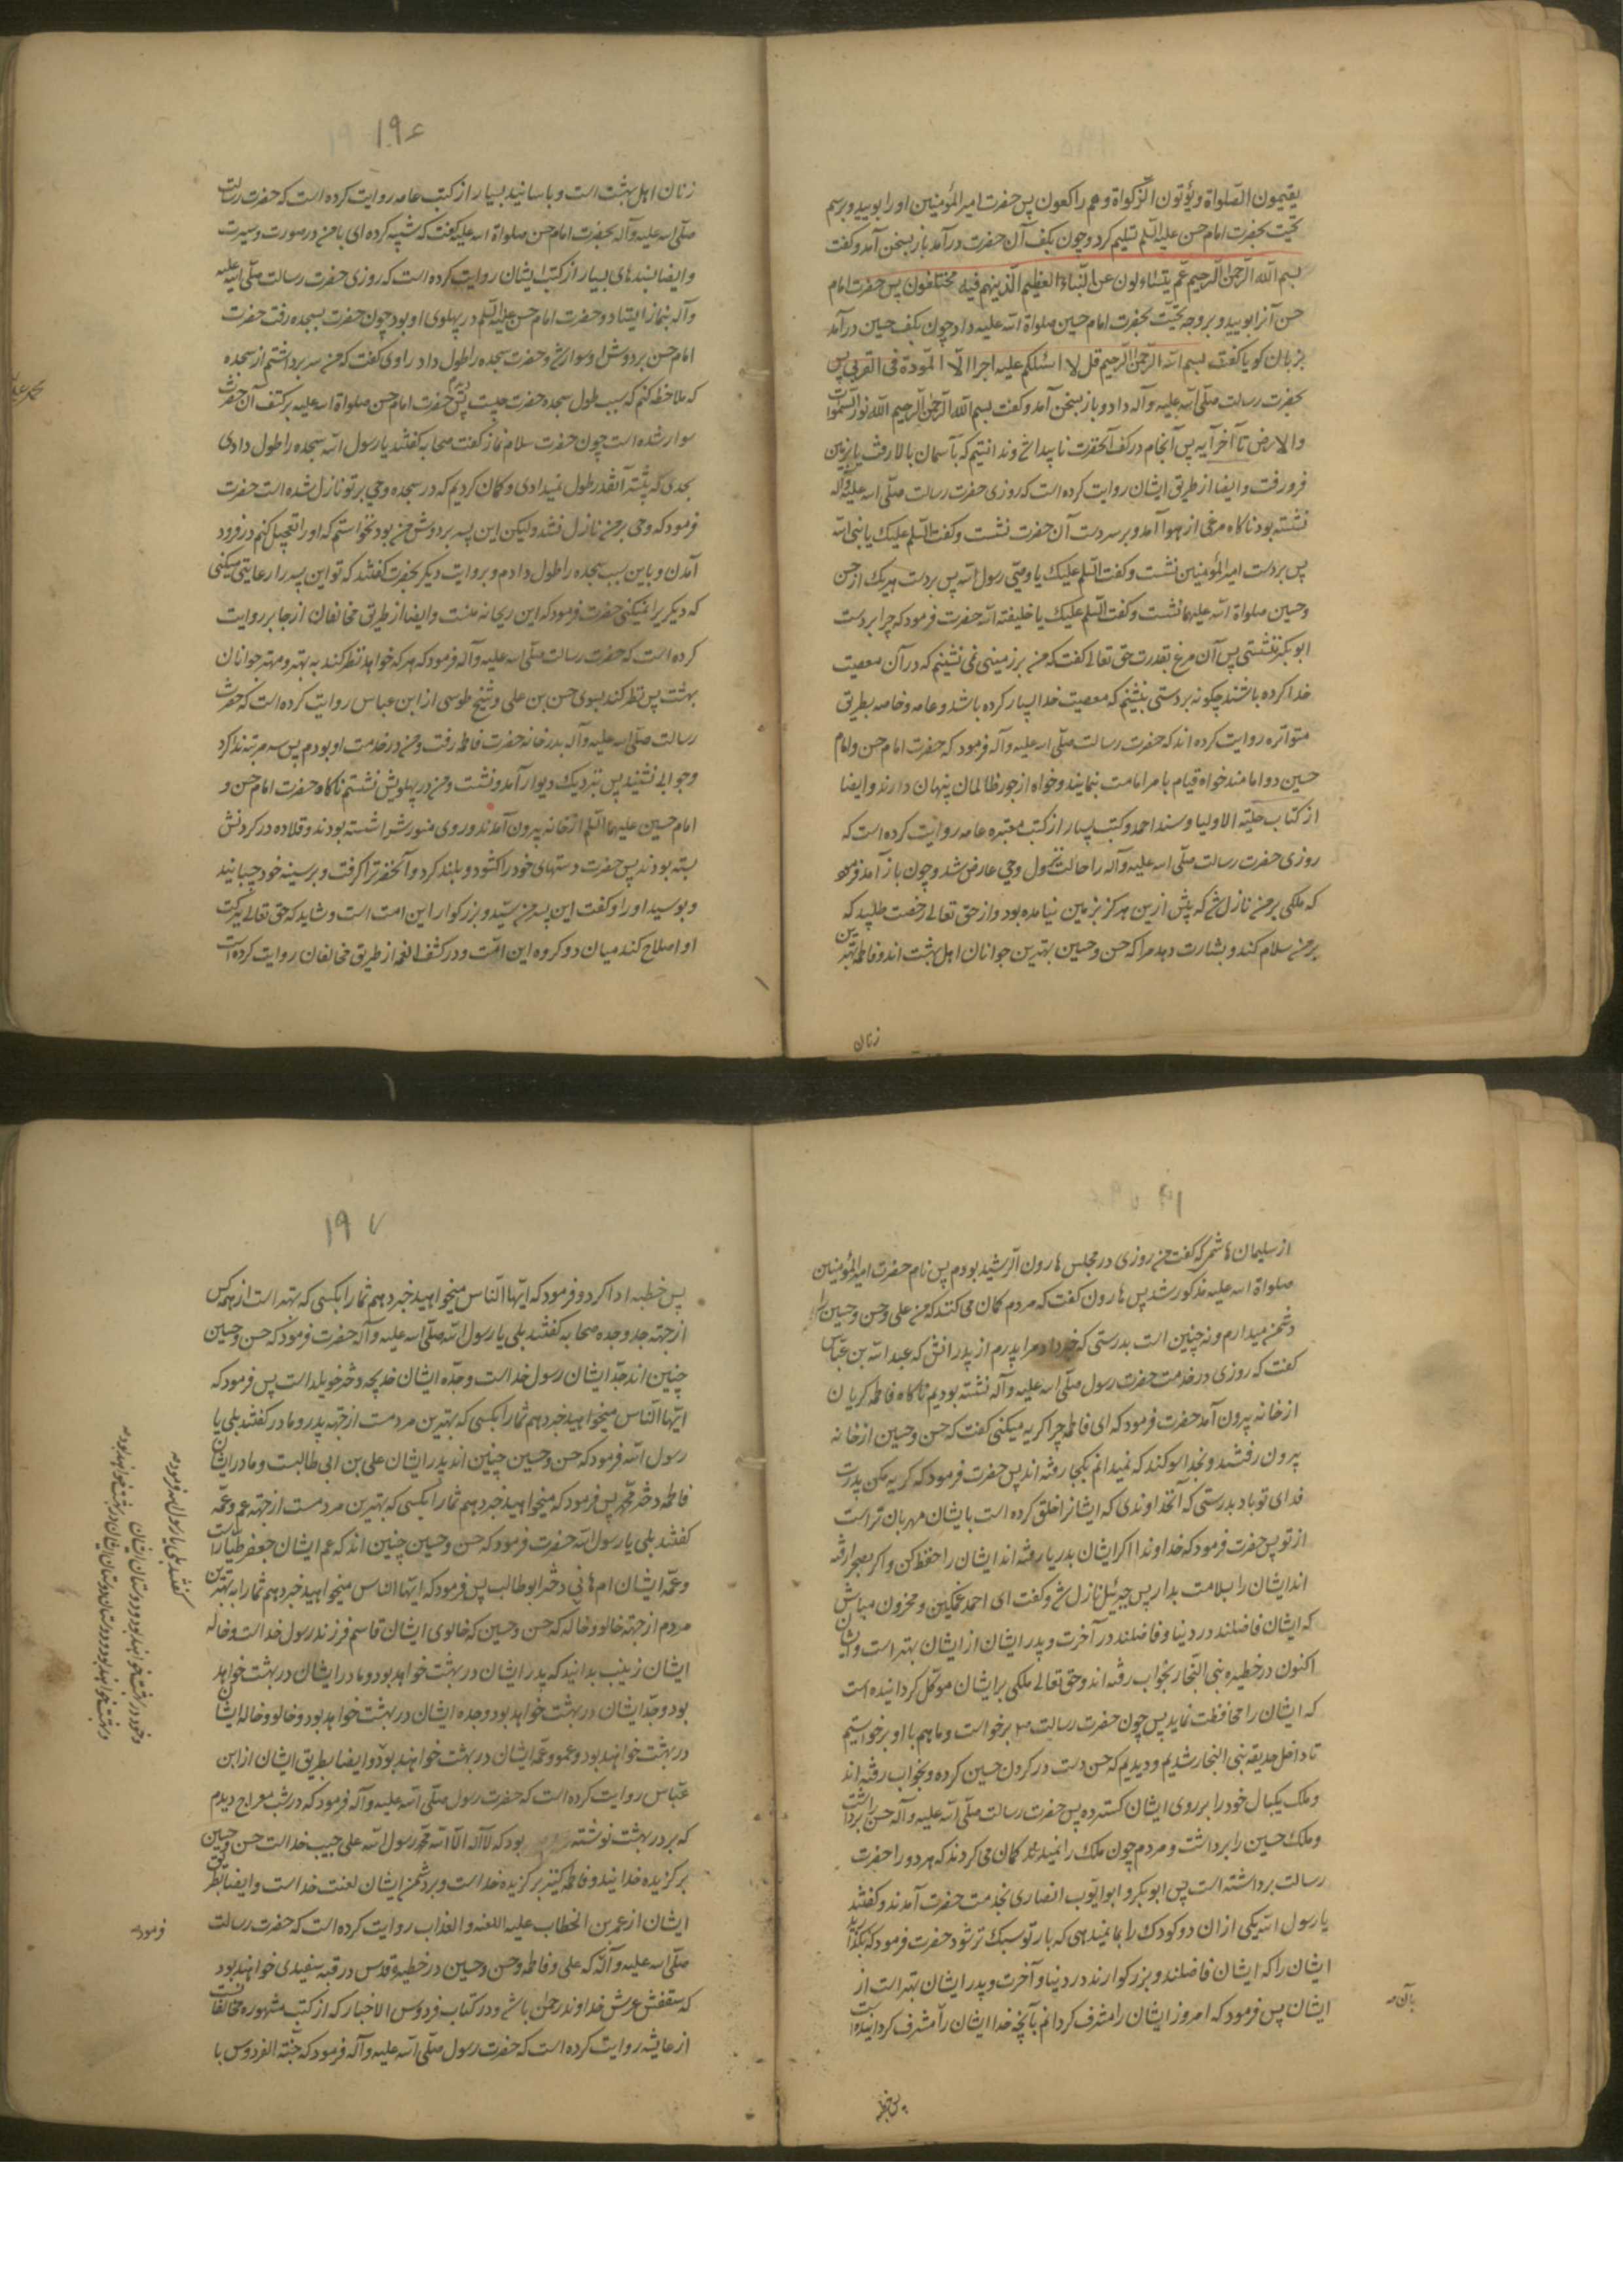 یقیمون الصلواة ویؤتون الزکواة وهم راکعون پس حضرت امیر المؤمنین او را بویید و برسم
تحیت بحضرت امام حسن علیه السلم تسلیم کرد و چون بکف آن حضرت درآمد باز بسخن آمد و کفت
بسم الله الرحمن الرحیم عم یتساءلون عن النباء العظیم الذینهم فیه مختلفون پس حضرت امام
حسن آنرا بویید و بر وجه تحیت بحضرت امام حسین صلواة الله علیه داد چون بکف حسین درآمد
بزبان کویا کفت بسم الله الرحمن الرحیم قل لا اسئلکم علیه اجرا الا المودة فی القربی پس
بحضرت رسالت صلی الله علیه وآله داد و باز بسخن آمد و کفت بسم الله الرحمن الرحیم الله نور السموات
والارض تا آخر آیه پس آنجام در کف آنحضرت ناپیدا شد و ندانستیم که بآسمان بالا رفت یا بزمین
فرو رفت و ایضا از طریق ایشان روایت کرده است که روزی حضرت رسالت صلی الله علیه وآله
نشسته بود ناکاه مرغی از هوا آمد و بر سر دست آن حضرت نشست و کفت السلم علیک یا نبی الله
پس بر دست امیر المؤمنین نشست و کفت السلم علیک یا وصی رسول الله پس بر دست هر یک از حسن
وحسین صلواة الله علیهما نشست و کفت السلم علیک یا خلیفته الله حضرت فرمود که چرا بر دست
ابوبکر ننشستی پس آن مرغ بقدرت حق تعالی کفت که من بر زمینی نمی نشینم که در آن معصیت
خدا کرده باشند چکونه بر دستی بنشینم که معصیت خدا بسیار کرده باشد و عامه و خاصه بطریق
متواتره روایت کرده اند که حضرت رسالت صلی الله علیه وآله فرمود که حضرت امام حسن و امام
حسین دو امامند خواه قیام بامر امامت بنمایند و خواه از جور ظالمان پنهان دارند و ایضا
از کتاب حلیته الاولیا و مسند احمد و کتب بسیار از کتب معتبره عامه روایت کرده است که
روزی حضرت رسالت صلی الله علیه وآله را حالت نزول وحی عارض شد و چون باز آمد فرمود
که ملکی بر من نازل شد که پیش ازین هرکز بزمین نیامده بود و از حق تعالی رخصت طلبید که
بر من سلام کند و بشارت دهد مرا که حسن و حسین بهترین جوانان اهل بهشت اند و فاطمه بهترین
زنان
۱۹۶
زنان اهل بهشت است و باسانید بسیار از کتب عامه روایت کرده است که حضرت رسالت
صلی الله علیه وآله بحضرت امام حسن صلواة الله علیه کفت که شبیه کرده ای با من در صورت و سیرت
وایضا بسندهای بسیار از کتب ایشان روایت کرده است که روزی حضرت رسالت صلی الله علیه
وآله بنماز ایستاد و حضرت امام حسن علیه السلم در پهلوی او بود چون حضرت بسجده رفت حضرت
امام حسن بر دوش او سوار شد و حضرت سجده را طول داد راوی کفت که من سر برداشتم از سجده
که ملاحظه کنم که سبب طول سجده حضرت چیست پس دیدم حضرت امام حسن صلواة الله علیه بر کتف آن حضرت
سوار شده است چون حضرت سلام نماز کفت صحابه کفتند یا رسول الله سجده را طول دادی
بحدی که پیشتر آنقدر طول نمیدادی و کمان کردیم که در سجده وحی بر تو نازل شده است حضرت
فرمود که وحی بر من نازل نشد ولیکن این پسر بر دوش من بود نخواستم که او را تعجیل کنم در فرود
آمدن و باین سبب سجده را طول دادم و بروایت دیکر بحضرت کفتند که تو این پسر را رعایتی میکنی
که دیکریرا نمیکنی حضرت فرمود که این ریحانه منست و ایضا از طریق مخالفان از جابر روایت
کرده است که حضرت رسالت صلی الله علیه وآله فرمود که هر که خواهد نظر کند به بهتر و مهتر جوانان
بهشت پس نظر کند بسوی حسن بن علی و شیخ طوسی از ابن عباس روایت کرده است که حضرت
رسالت صلی الله علیه وآله بدر خانه حضرت فاطمه رفت و من در خدمت او بودم پس سه مرتبه ندا کرد
وجوابی نشنید پس نزدیک دیوار آمد و نشست و من در پهلویش نشستم ناکاه حضرت امام حسن و
امام حسین علیهما السلم از خانه بیرون آمدند و روی منورشرا شسته بودند و قلاده در کردنش
بسته بودند پس حضرت دستهای خود را کشود و بلند کرد و آنحضرترا کرفت و بر سینه خود چسبانید
و بوسید او را و کفت این پسر من سید و بزرکوار این امت است و شاید که حق تعالی ببرکت
او اصلاح کند میان دو کروه این امت و در کشف الغمه از طریق مخالفان روایت کرده است
از سلیمان هاشمی که کفت من روزی در مجلس هارون الرشید بودم پس نام حضرت امیر المؤمنین
صلواة الله علیه مذکور شد پس هارون کفت که مردم کمان می کنند که من علی و حسن و حسین را
دشمن میدارم و نه چنین است بدرستی که خبر داد مرا پدرم از پدرانش که عبد الله بن عباس
کفت که روزی در خدمت حضرت رسول صلی الله علیه وآله نشسته بودیم ناکاه فاطمه کریان
از خانه بیرون آمد حضرت فرمود که ای فاطمه چرا کریه میکنی کفت که حسن و حسین از خانه
بیرون رفتند و بخدا سوکند که نمیدانم بکجا رفته اند پس حضرت فرمود که کریه مکن پدرت
فدای تو باد بدرستی که آنخداوندی که ایشانرا خلق کرده است بایشان مهربان تر است
از تو پس حضرت فرمود که خداوندا اکر ایشان بدریا رفته اند ایشان را حفظ کن و اکر بصحرا رفته
اند ایشان را بسلامت بدار پس جبرئیل نازل شد و کفت ای احمد غمکین و محزون مباش
که ایشان فاضلند در دنیا و فاضلند در آخرت و پدر ایشان از ایشان بهتر است و ایشان
اکنون در حظیره بنی النجار بخواب رفته اند و حق تعالی ملکی بر ایشان موکل کردانیده است
که ایشان را محافظت نماید پس چون حضرت رسالت برخواست و ما هم با او برخواستیم
تا داخل حدیقه بنی النجار شدیم و دیدیم که حسن دست در کردن حسین کرده و بخواب رفته اند
و ملک یکبال خود را بر روی ایشان کسترده پس حضرت رسالت صلی الله علیه وآله حسن برداشت
و ملک حسین را برداشت و مردم چون ملک را نمیدیدند کمان می کردند که هر دو را حضرت
رسالت برداشته است پس ابوبکر و ابو ایوب انصاری بخدمت حضرت آمدند و کفتند
یا رسول الله یکی از ان دو کودک را بما نمیدهی که بار تو سبک تر شود حضرت فرمود که بکذارید
ایشان را که ایشان فاضلند و بزرکوارند در دنیا و آخرت و پدر ایشان بهتر است از
ایشان پس فرمود که امروز ایشان را مشرف کردانم بآنچه خدا ایشان را مشرف کردانیده است
بآن
پس خطبه
۱۹۷
پس خطبه ادا کرد و فرمود که ایها الناس میخواهید خبر دهم شما را بکسی که بهتر است از همه کس
از جهته جد و جده صحابه کفتند بلی یا رسول الله صلی الله علیه وآله حضرت فرمود که حسن و حسین
چنین اند جد ایشان رسول خداست و جده ایشان خدیجه دختر خویلد است پس فرمود که
ایها الناس میخواهید خبر دهم شما را بکسی که بهترین مردمست از جهته پدر و مادر کفتند بلی یا
رسول الله فرمود که حسن و حسین چنین اند پدر ایشان علی بن ابی طالبست و مادر ایشان
فاطمه دختر محمد پس فرمود که میخواهید خبر دهم شما را بکسی که بهترین مردمست از جهته عم و عمه
کفتند بلی یا رسول الله حضرت فرمود که حسن و حسین چنین اند که عم ایشان جعفر طیار است
و عمه ایشان ام هانی دختر ابوطالب پس فرمود که ایها الناس میخواهید خبر دهم شما را به بهترین
مردم از جهته خالو و خاله که حسن و حسین که خالوی ایشان قاسم فرزند رسول خداست و خاله
ایشان زینب بدانید که پدر ایشان در بهشت خواهد بود و مادر ایشان در بهشت خواهد
بود و جد ایشان در بهشت خواهد بود و جده ایشان در بهشت خواهد بود و خالو و خاله ایشان
در بهشت خواهند بود و عمو و عمه ایشان در بهشت خواهند بود و ایضا بطریق ایشان از ابن
عباس روایت کرده است که حضرت رسول صلی الله علیه وآله فرمود که در شب معراج دیدم
که بر در بهشت نوشته بود که لا اله الا الله محمد رسول الله علی حبیب خداست حسن و حسین
برکزیده خدایند و فاطمه کنیز برکزیده خداست و بر دشمن ایشان لعنت خداست و ایضا بطریق
ایشان از عمر بن الخطاب علیه اللعنه والعذاب روایت کرده است که حضرت رسالت
صلی الله علیه وآله که علی و فاطمه و حسن و حسین در خطیره قدس در قبه سفیدی خواهند بود
که سقفش عرش خداوند رحمن باشد و در کتاب فردوس الاخبار که از کتب مشهوره مخالفانست
از عایشه روایت کرده است که حضرت رسول صلی الله علیه وآله فرمود که جنته الفردوس با
کفتند بلی یا رسول الله فرمود
و خود در بهشت خواهند بود و دوستان ایشان
در بهشت خواهند بود و دوستان دوستان ایشان در بهشت خواهند بود
فرمود